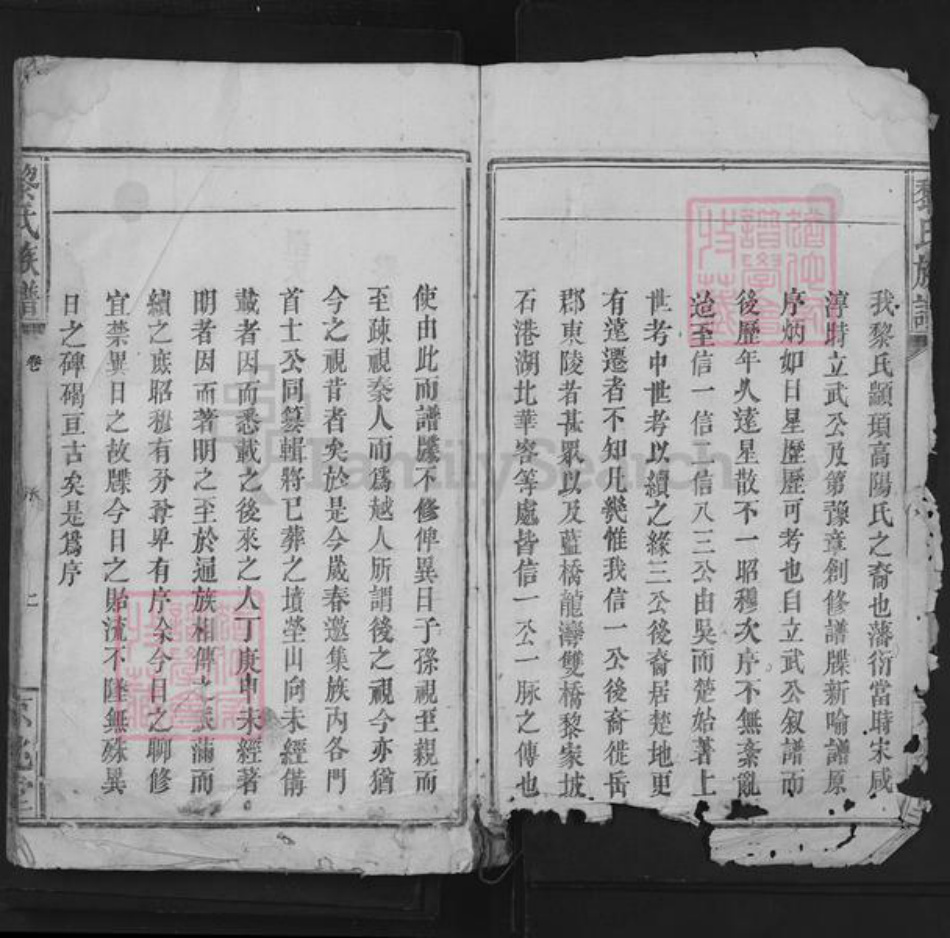 黎氏族譜
我黎氏顓頊高陽氏之裔也藩衍當時宋咸
淳時立武公及第豫章創修譜牒新喻譜原
序炳如日星歷歷可考也自立武公敘譜而
後歷年久遠星散不一昭穆次序不無紊亂
迨至信一信二信八三公由吳而楚始著上
世考中世考以續之緣三公後裔居楚地更
有遠遷者不知凡幾惟我信一公後裔徙岳
郡東陵者甚眾以及藍橋龍灣雙橋黎家坡
石港湖北華容等處皆信一公一脈之傳也
使由此而譜牒不修俾異日子孫視至親而
至疎視秦人而爲越人所謂後之視今亦猶
今之視昔者矣於是今歲春邀集族內各門
首士公同纂輯將已葬之墳塋山向未經僃
載者因而悉載之後來之人丁庚申未經著
明者因而著明之至於通族相傳之派滿而
續之庶昭穆有分尊卑有序余今日之聊修
宜禁異日之故牒今日之貽流不隆無殊異
日之碑碣亘古矣是爲序
黎氏族譜
卷
二
FamilySearch